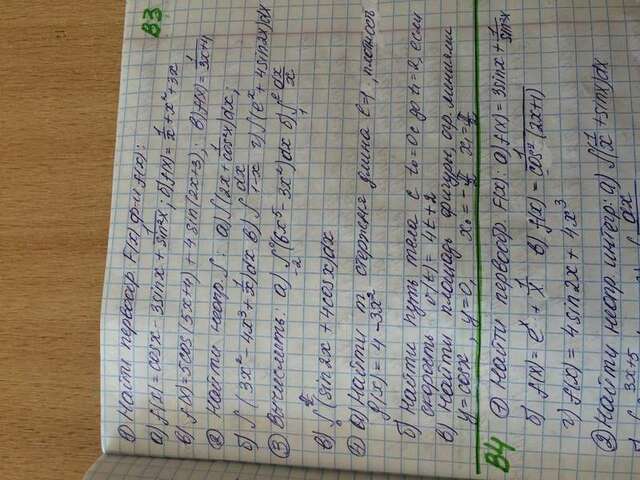 В3
① Найти первообр F(x) ф-и f(x):
а) f(x)=cosx - 3sinx + 1/sin²x; б) f(x)= 1/x + x² + 3x
в) f(x)=5cos(5x+4) + 4sin(2x+3); в) f(x)= 1/(3x+4)
② Найти неопр. ∫: а) ∫(2x + 1/cos²x)dx;
б) ∫(3x² - 4x³ + 1/x)dx в) ∫ dx/(1-x) г) ∫(eˣ + 4sin2x)dx
③ Вычислить: а) ∫₋₂⁰(6x⁵ - 3x²)dx б) ∫₁ᵉ dx/x
в) ∫(sin2x + 4cosx)dx
④ а) Найти m стержня длина ℓ=1, плотность
ρ(x) = 4 - 3x²
б) Найти путь тела с t₀=0с до t₁=2, если
скорость v(t) = 4t+2
в) Найти площадь фигуры, огр. линиями
y=cosx, y=0, x₀=-π/2 x₁=π/2
В4 ① Найти первообр. F(x): а) f(x)= 3sinx + 1/sin²x
б) f(x)= eˣ + 1/x в) f(x)= 1/cos²(2x+1)
г) f(x) = 4sin2x + 4x³
② Найти неопр интегр: а) ∫(1/x + sinx)dx
3x+5 dx